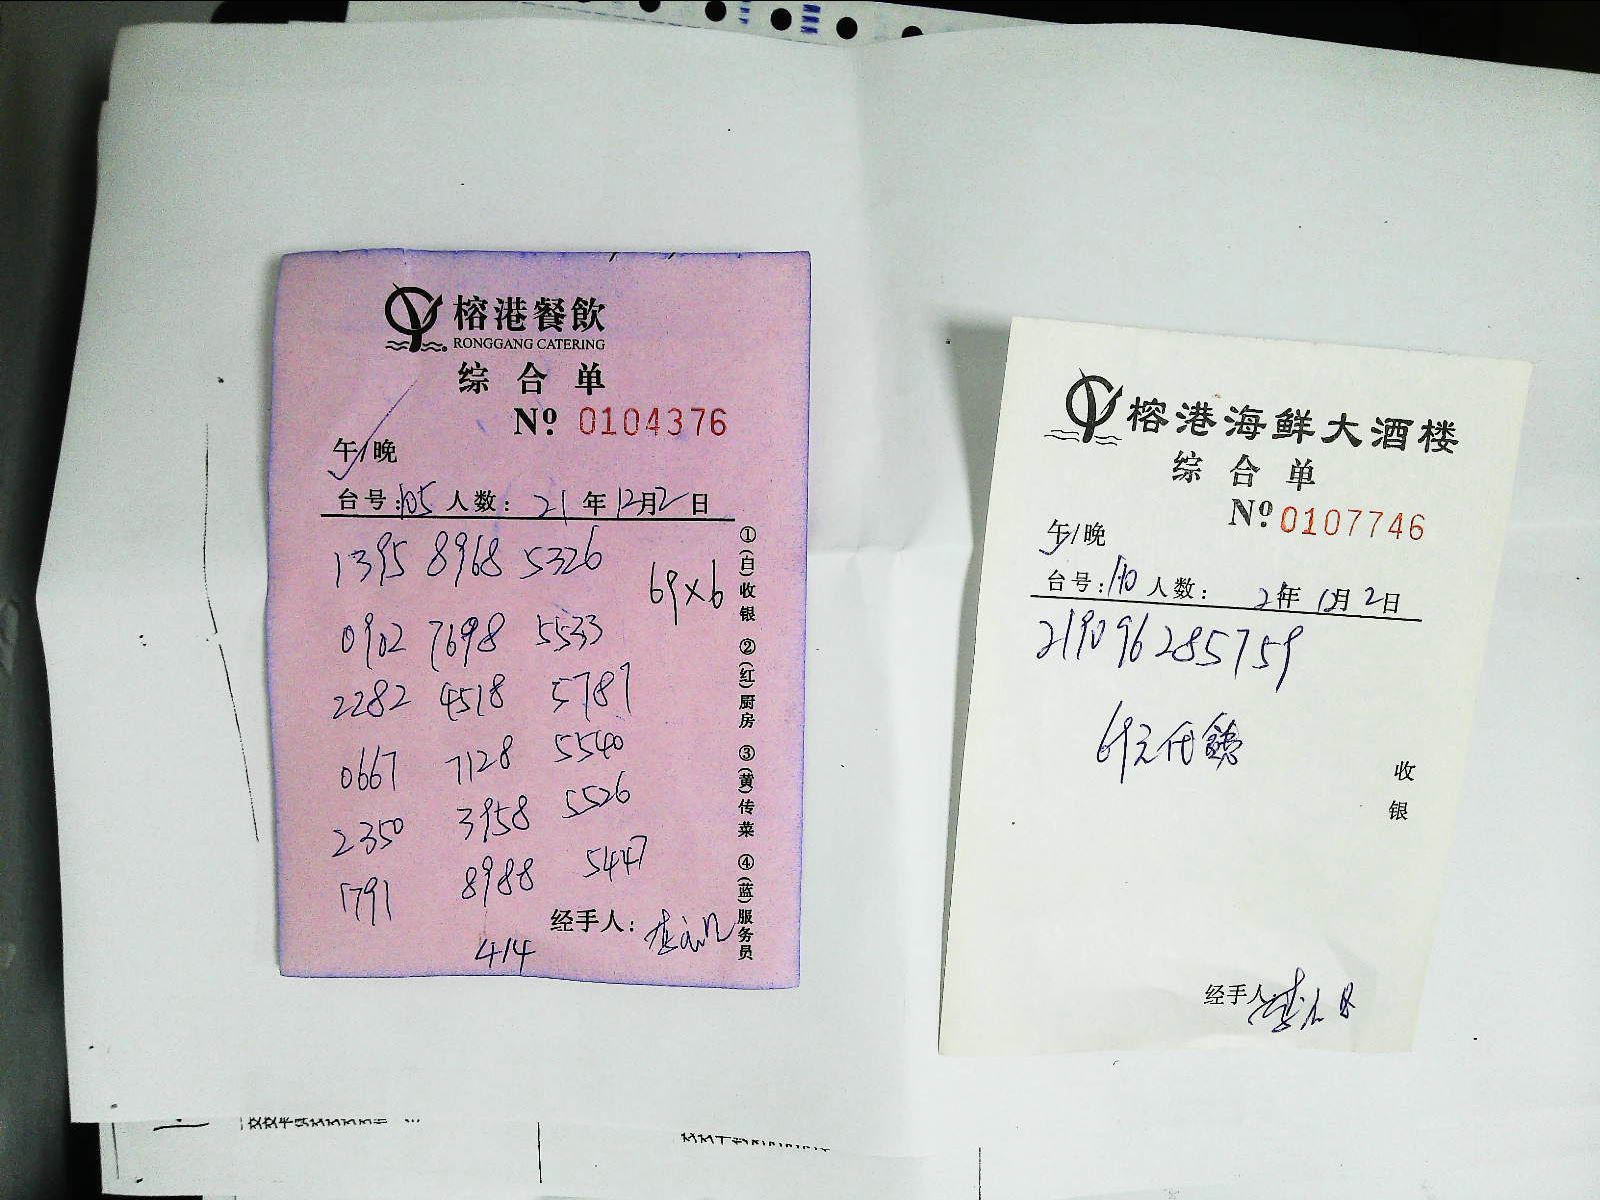 榕港餐飲
RONGGANG CATERING
综合单
Nº 0104376
午/晚
台号:105 人数: 21年12月2日
1395 8968 5326
69×6
0902 7698 5533
2282 4518 5787
0667 7128 5540
2350 3958 5526
1791 8988 5447
经手人:
414
①(白)收银 ②(红)厨房 ③(黄)传菜 ④(蓝)服务员
榕港海鲜大酒楼
综合单
Nº 0107746
午/晚
台号: 人数: 2年12月2日
219096285759
69元代
收银
经手人: